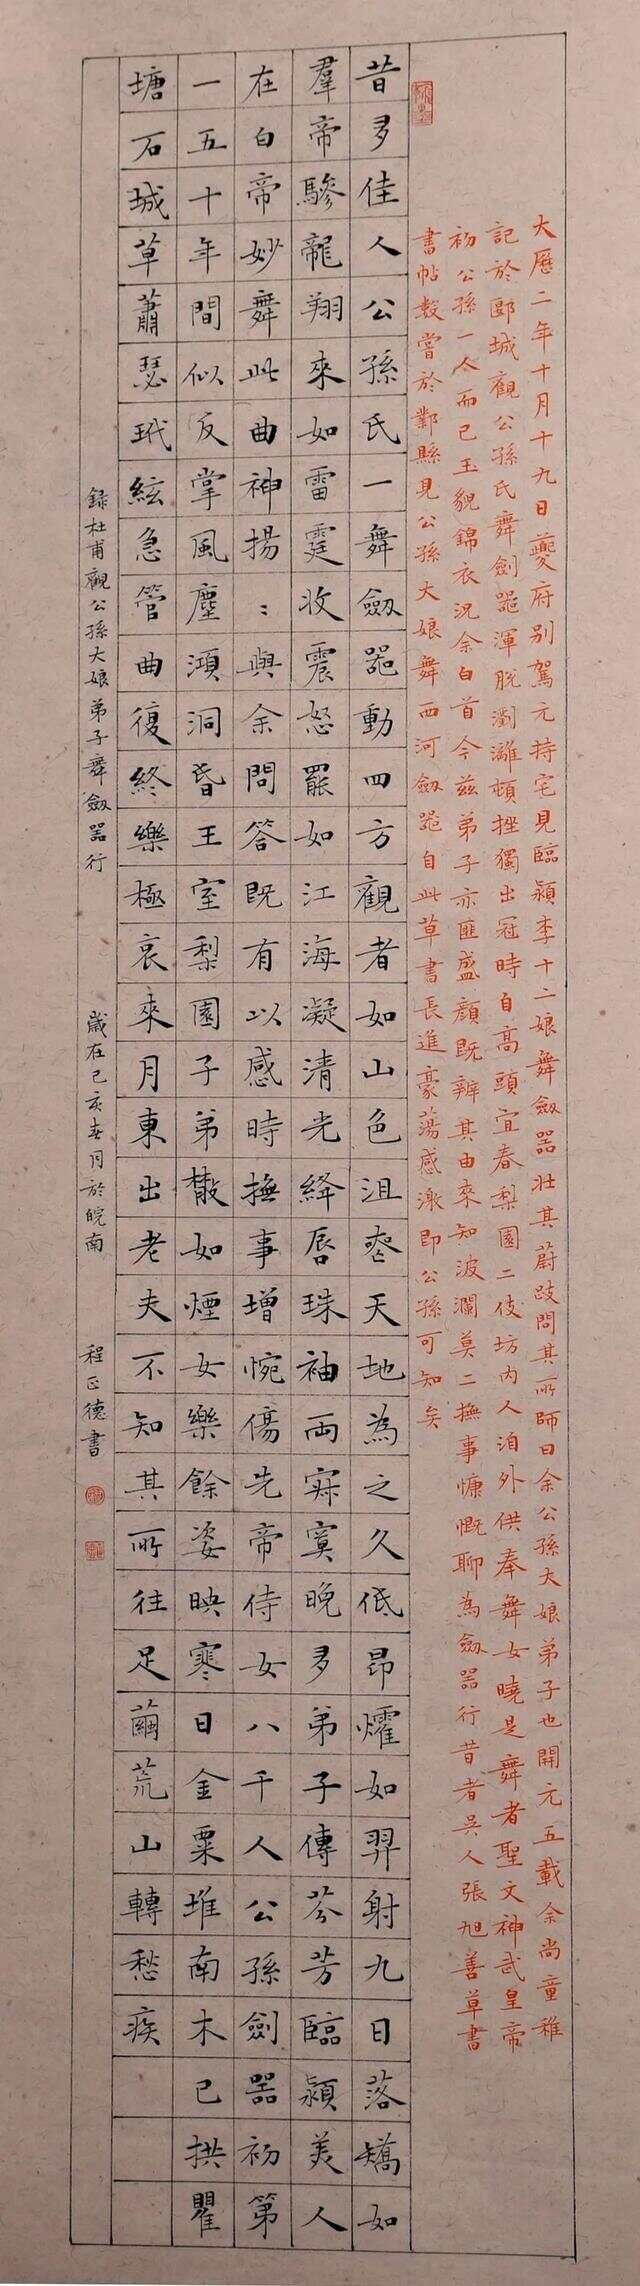 大曆二年十月十九日夔府別駕元持宅見臨潁李十二娘舞劔器壯其蔚跂問其所師曰余公孫大娘弟子也開元五載余尚童稚
記於郾城觀公孫氏舞劍器渾脫瀏灕頓挫獨出冠時自高頭宜春梨園二伎坊內人洎外供奉舞女曉是舞者聖文神武皇帝
初公孫一人而已玉貌錦衣況余白首今茲弟子亦匪盛顏既辨其由來知波瀾莫二撫事慷慨聊為劔器行昔者吳人張旭善草書
書帖數嘗於鄴縣見公孫大娘舞西河劔器自此草書長進豪蕩感激即公孫可知矣
昔多佳人公孫氏一舞劔器動四方觀者如山色沮喪天地為之久低昂燿如羿射九日落矯如
羣帝驂龍翔來如雷霆收震怒罷如江海凝清光絳唇珠袖兩寂寞晚多弟子傳芬芳臨潁美人
在白帝妙舞此曲神揚〻與余問答既有以感時撫事增惋傷先帝侍女八千人公孫劍器初第
一五十年間似反掌風塵澒洞昏王室梨園子弟散如煙女樂餘姿映寒日金粟堆南木已拱瞿
塘石城草蕭瑟玳絃急管曲復終樂極哀來月東出老夫不知其所往足繭荒山轉愁疾
錄杜甫觀公孫大娘弟子舞劔器行 歲在己亥春月於皖南 程正德書